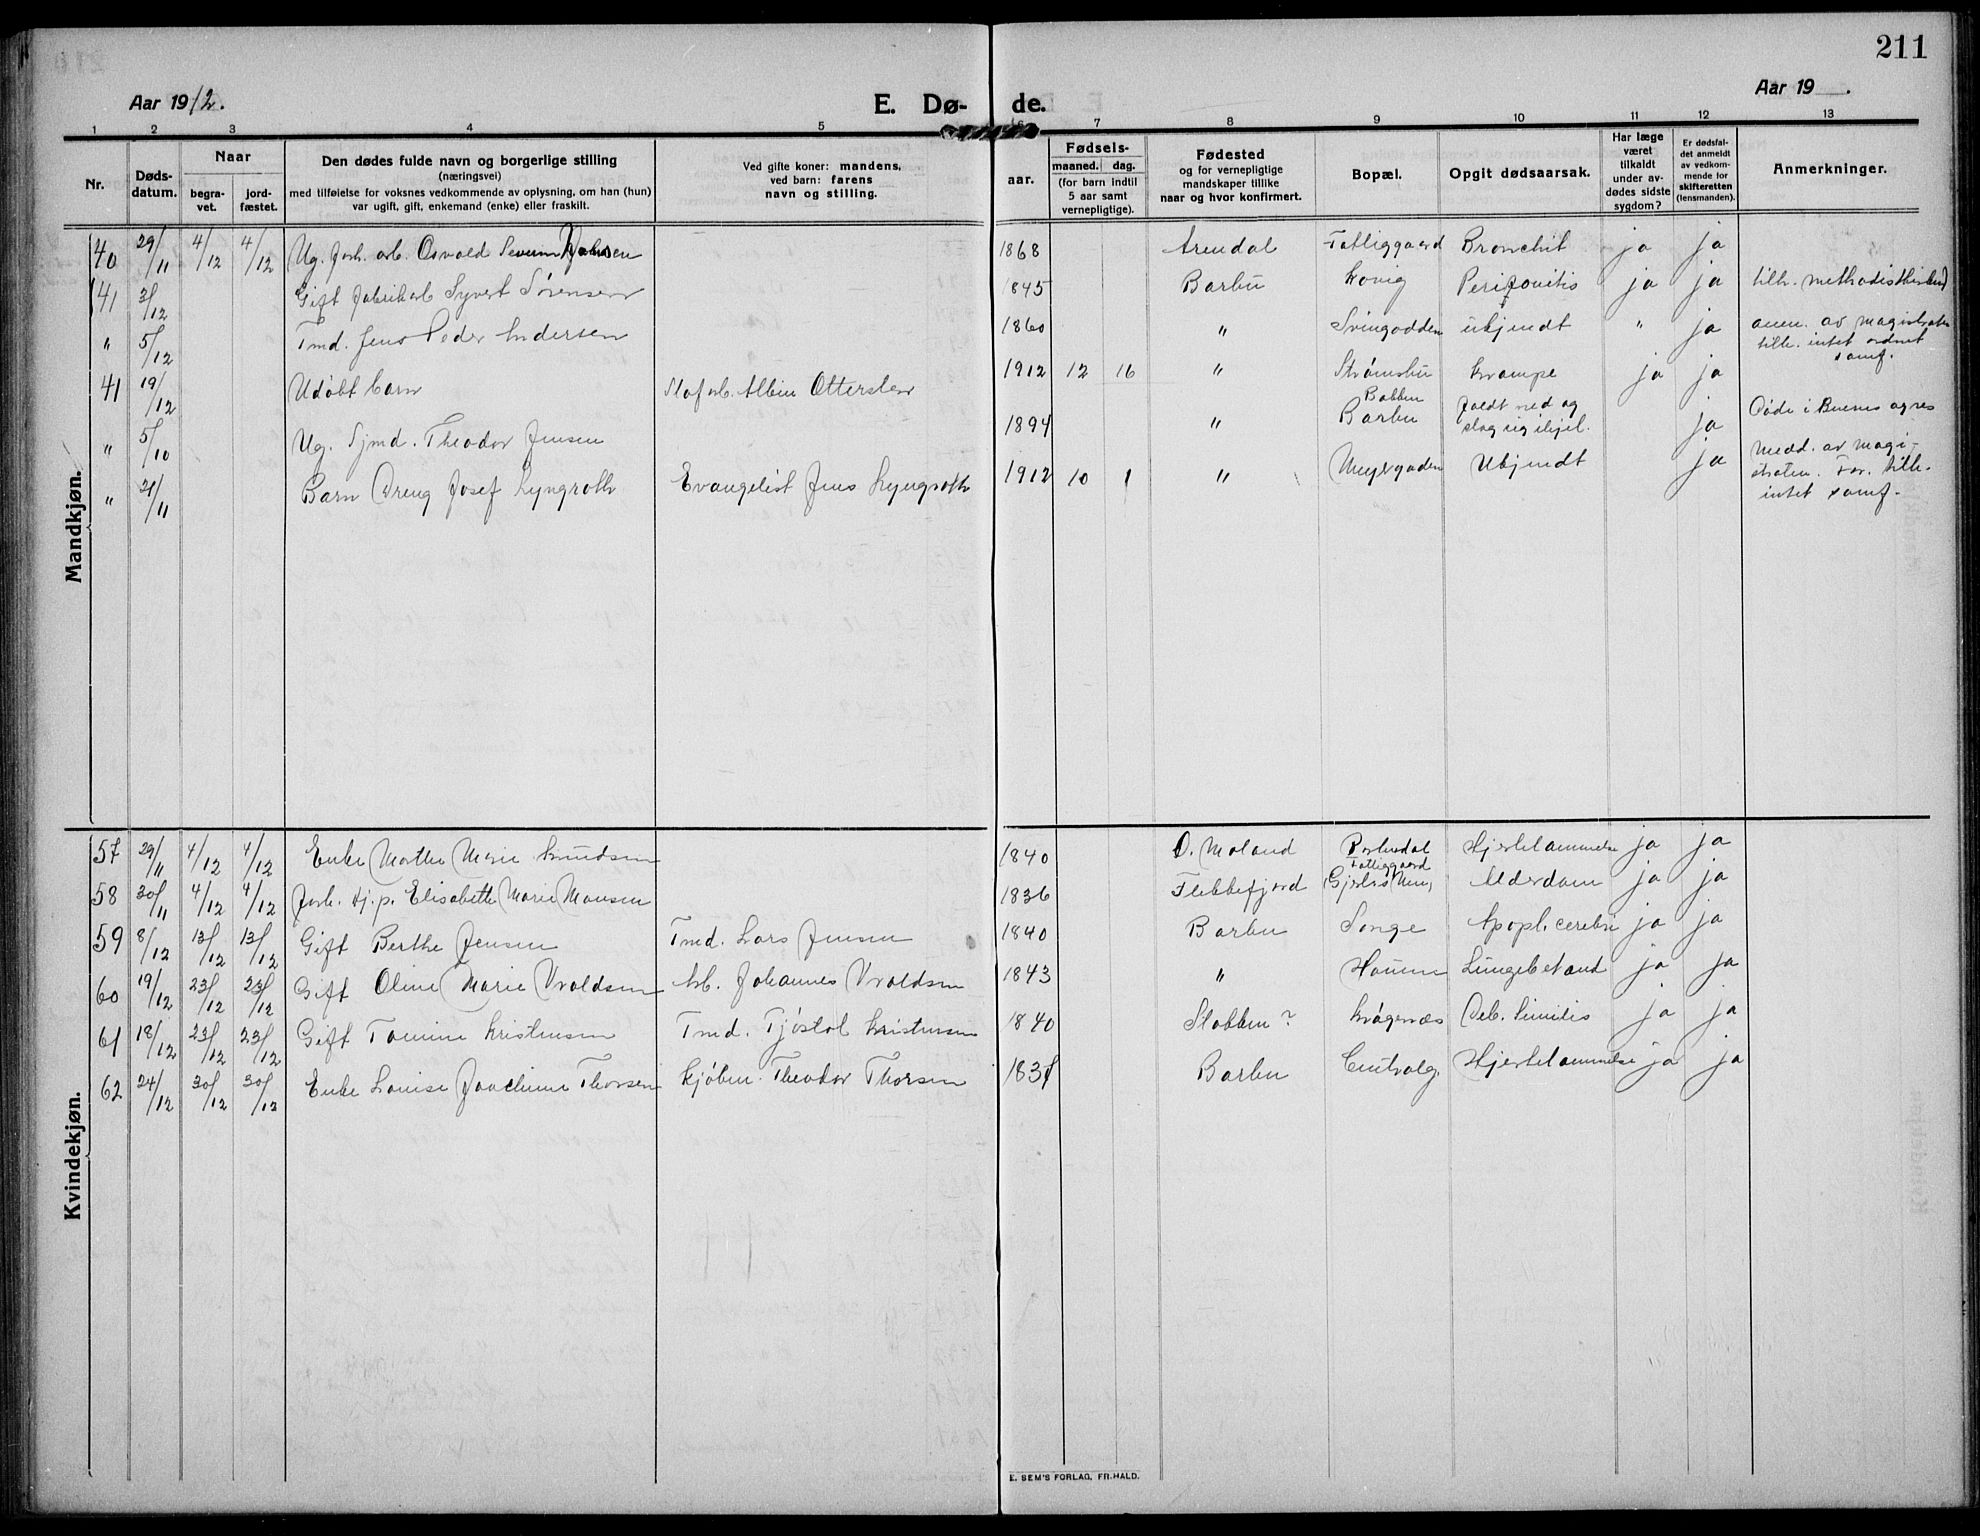 211
Aar 1912. E. Dø- de. Aar 19 .
1 2 3 4 5 6 7 8 9 10 11 12 13
Nr.
Døds-
datum.
Naar
begra-
vet.
jord-
fæstet.
Den dødes fulde navn og borgerlige stilling
(næringsvei)
med tilføielse for voksnes vedkommende av oplysning, om han (hun)
var ugift, gift, enkemand (enke) eller fraskilt.
Ved gifte koner: mandens,
ved barn: farens
navn og stilling.
Fødsels-
aar.
maaned. dag.
(for barn indtil
5 aar samt
vernepligtige).
Fødested
og for vernepligtige
mandskaper tillike
naar og hvor konfirmert.
Bopæl.
Opgit dødsaarsak.
Har læge
været
tilkaldt
under av-
dødes sidste
sygdom?
Er dødsfal-
det anmeldt
av vedkom-
mende for
skifteretten
(lensmanden).
Anmerkninger.
Mandkjøn.
40 29/11 4/12 4/12 Ug. forh. arb. Osvald Severin 1868 Arendal Fattiggaard Bronchit ja ja
41 3/12 Gift fabrikarb Syvert Sørensen 1845 Barbu Kovig ja ja tilh. methodistkirken)
" 5/12 Tmd. Jens Peder Andersen 1860 " Svingodden ukjendt " ja anm. av magistraten
tilh. intet ordnet
samf.
41 19/12 Udøbt barn Albin Ottersten 1912 12 16 " Strømsbu krampe ja ja
" 5/10 Ug. Sjmd. Theodor Jensen 1894 " Bakken
Barbu faldt ned og
slog sig ihjel. ja Døde i Buenos ayres
" 21/11 Barn Dreng Josef Lyngroth Evangelist Jens Lyngroth 1912 10 1 " Ukjendt ja Medd. av magi-
straten. For. tilh.
intet samf.
Kvindekjøn.
57 29/11 4/12 4/12 Enke Marthe Marie Knudsen 1840 Ø. Moland Hjertelammelse ja ja
58 30/11 4/12 4/12 forh. tj.p. Elisabeth Marie Monsen 1836 Flekkefjord Fattiggaard
Alderdom ja ja
59 8/12 13/12 13/12 Gift Berthe Jensen Tmd. Lars Jensen 1840 Barbu Songe Apopl. cerebri ja ja
60 19/12 23/12 23/12 Gift Oline Marie Vraldsen Arb. Johannes Vraldsen 1843 " Lungebetænd ja ja
61 18/12 23/12 23/12 Gift Tomine Kristensen Tmd. Tjøstol Kristensen 1840 Stokken? Kragenæs Deb. senilis ja ja
62 24/12 30/12 30/12 Enke Louise Joachime Thorsen Kjøbm. Theodor Thorsen Barbu Centralg. Hjertelammelse ja ja
E. SEM'S FORLAG, FR.HALD.